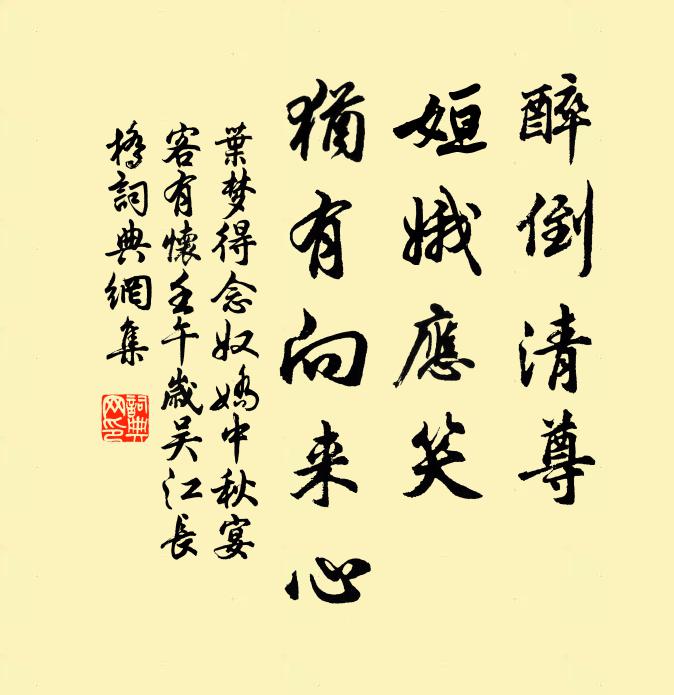 醉倒清尊
姮娥應笑
猶有向来心
葉梦得念奴嬌中秋宴
客有懷壬午歳吴江長
橋詞典網集
詞典
网印